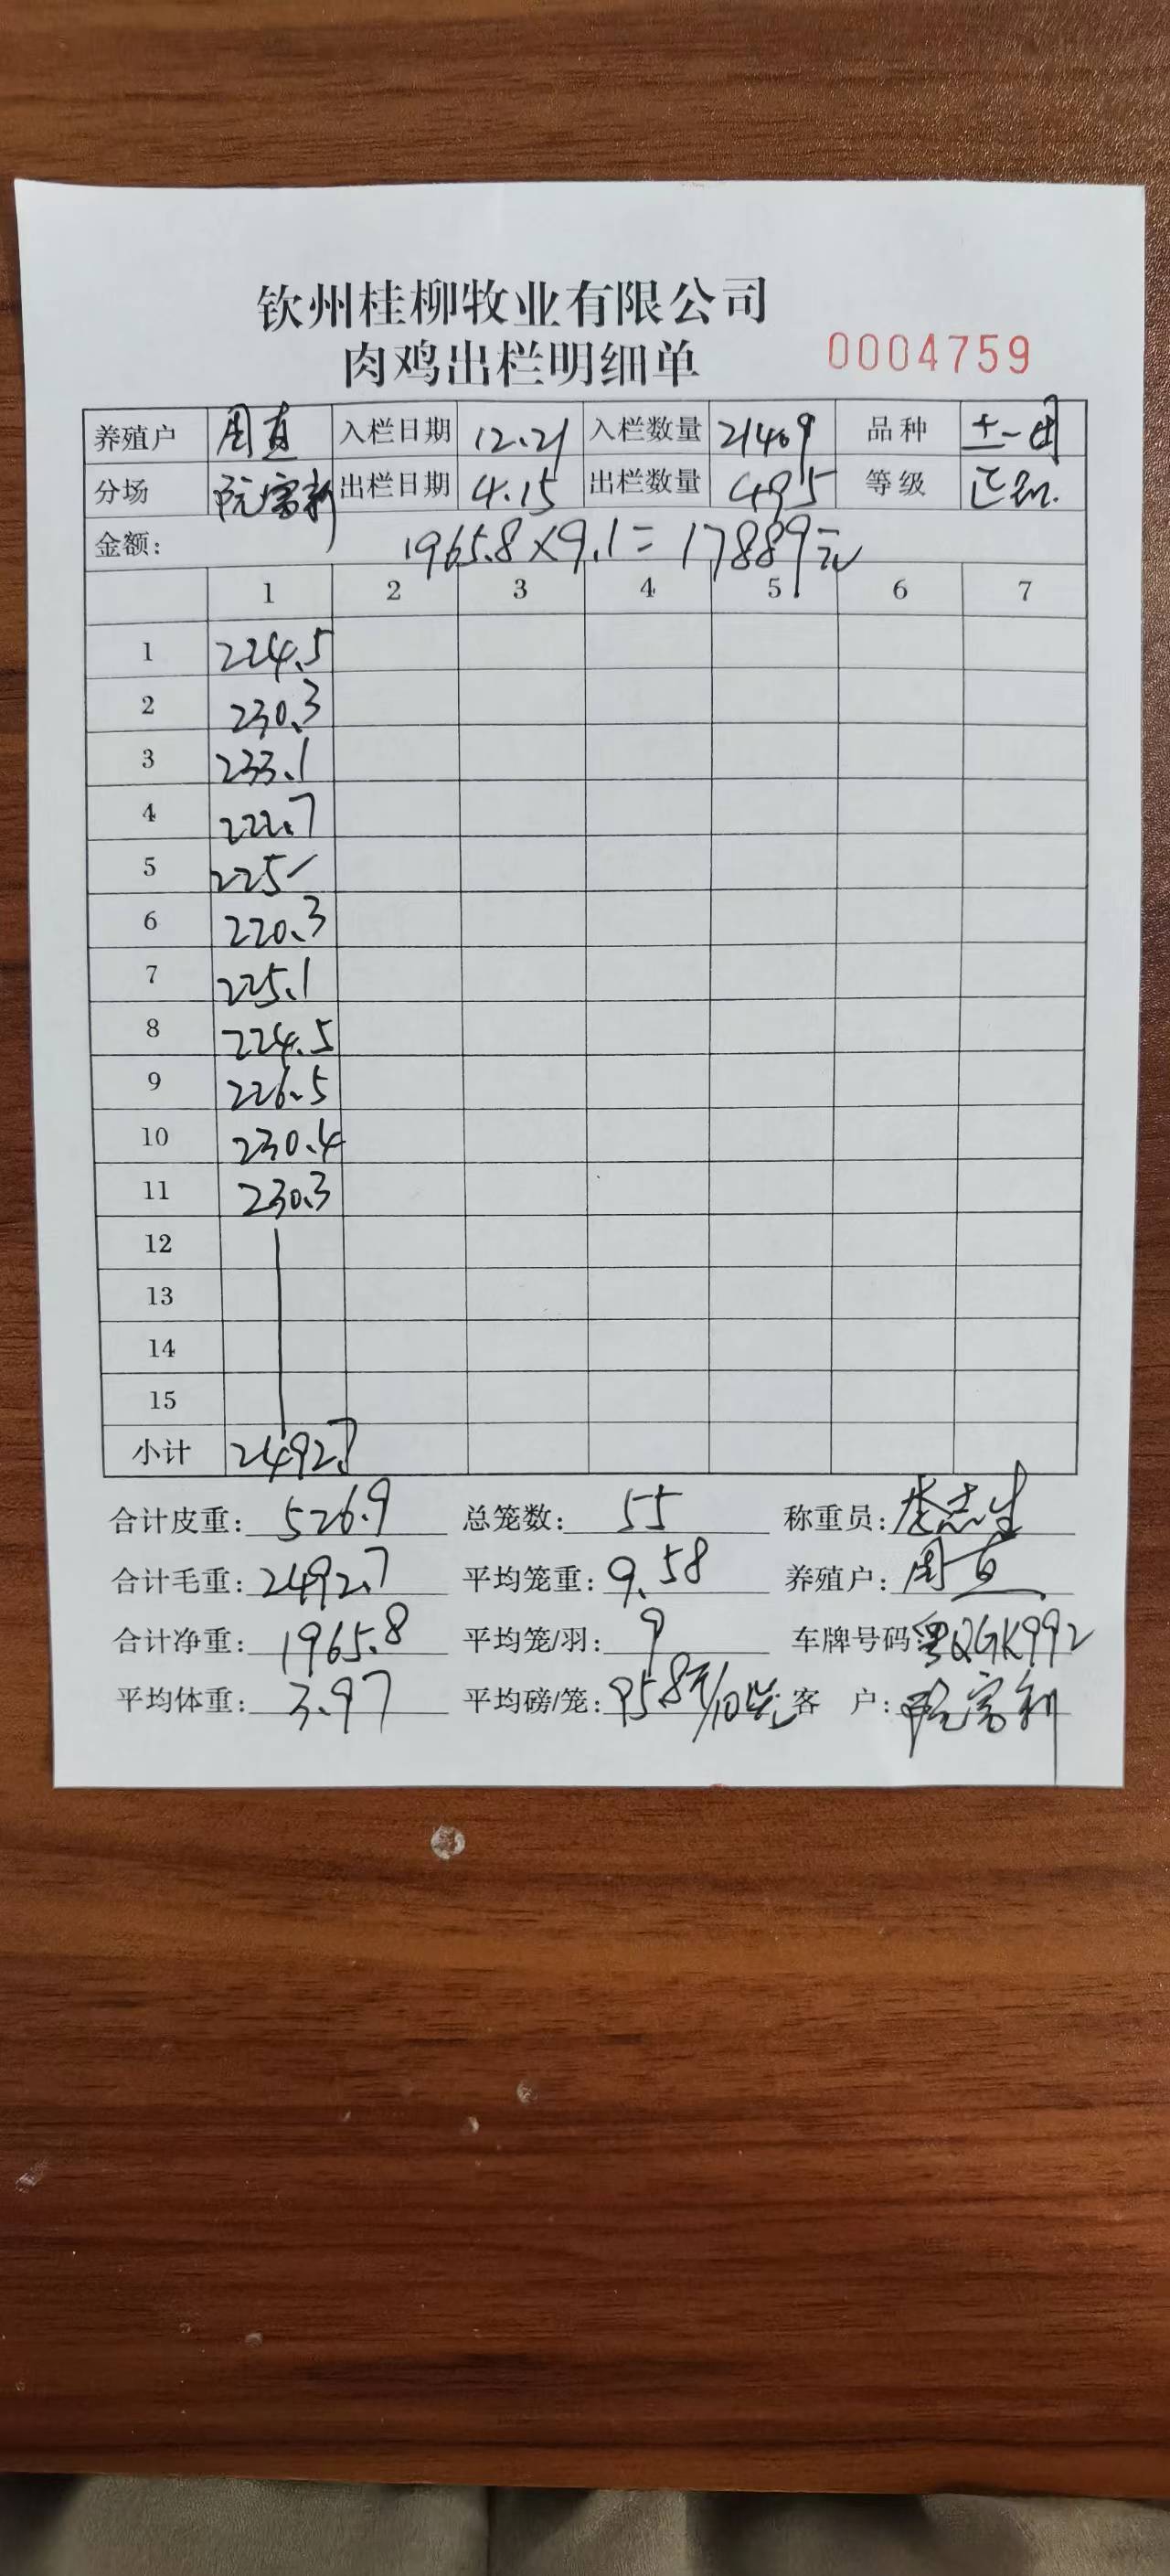 钦州桂柳牧业有限公司
肉鸡出栏明细单 0004759
养殖户 周直 入栏日期 12.21 入栏数量 21409 品种 土一
分场 阮富新 出栏日期 4.15 出栏数量 495 等级 正
金额: 1965.8×9.1=17889元
1 2 3 4 5 6 7
1 224.5
2 230.3
3 233.1
4 222.7
5 225
6 220.3
7 225.1
8 224.5
9 226.5
10 230.4
11 230.3
12
13
14
15
小计 2492.7
合计皮重: 526.9 总笼数: 55 称重员: 李志生
合计毛重: 2492.7 平均笼重: 9.58 养殖户: 周直
合计净重: 1965.8 平均笼/羽: 9 车牌号码 粤QGK992
平均体重: 3.97 平均磅/笼: 95.8斤/10笼 客 户: 阮富新